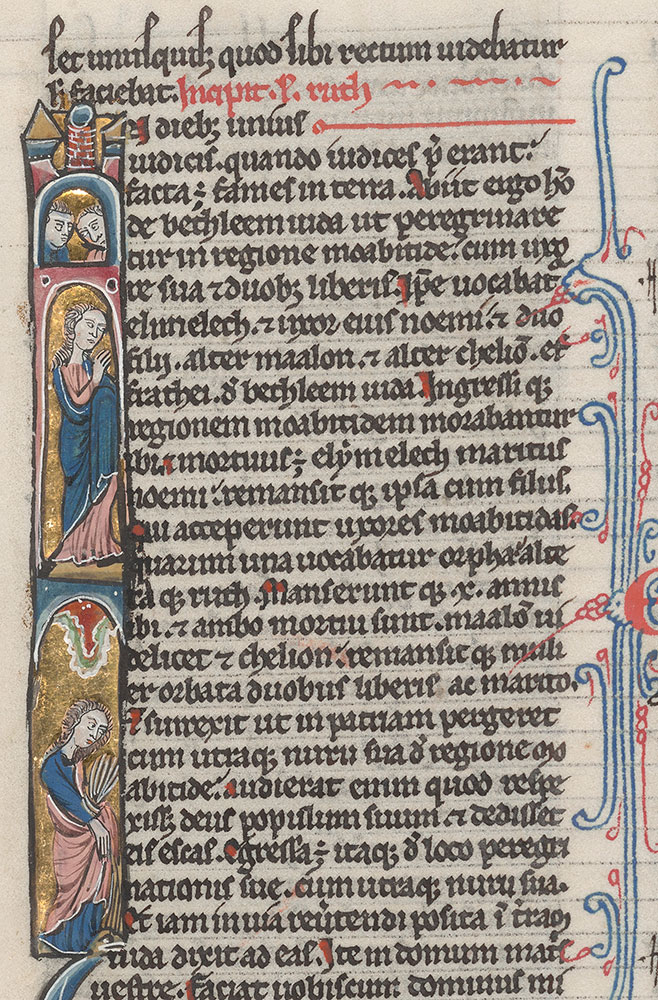 set unusquisq; quod sibi rectum uidebatur
faciebat. Incipit. l. ruth
N dieb; unius
iudicis. quando iudices p̄erant.
facta ē fames in terra. Abiit ergo hō
de bethleem iuda ut peregrinare
tur in regione moabitide. cum uxo
re sua ⁊ duob; liberis. Ip̄e uocabat̄
elimelech. ⁊ uxor eius noemi. ⁊ duo
filij. alter maalon. ⁊ alter cheliō. et
frathei. d̄ bethleem iuda. Ingressi q;
regionem moabitidem morabantur
ibi. ⁊ mortuus ē elymelech maritus
noemi. remansit q; ipsa cum filiis.
Qui acceperunt uxores moabitidas.
quarum una uocabatur orpha. alte
ra q; ruth. Manserunt q; x. annis
ibi. ⁊ ambo mortui sunt. maalō ui
delicet ⁊ chelion. remansit q; muli
er orbata duobus liberis ac marito.
⁊ surrexit ut in patriam pergeret
cum utraq; nuru sua d̄ regione mo
abitide. Audierat enim quod respe
xiss; deus populum suum ⁊ dedisset
eis escas. Egressa ē itaq; d̄ loco peregri
nationis sue. cum utraq; nuru sua.
Et iam in uia reu̅tendi posita ī t̄ram
iuda dixit ad eas. Ite in domum mat̄s
uestre. faciat uobiscum dominus mi